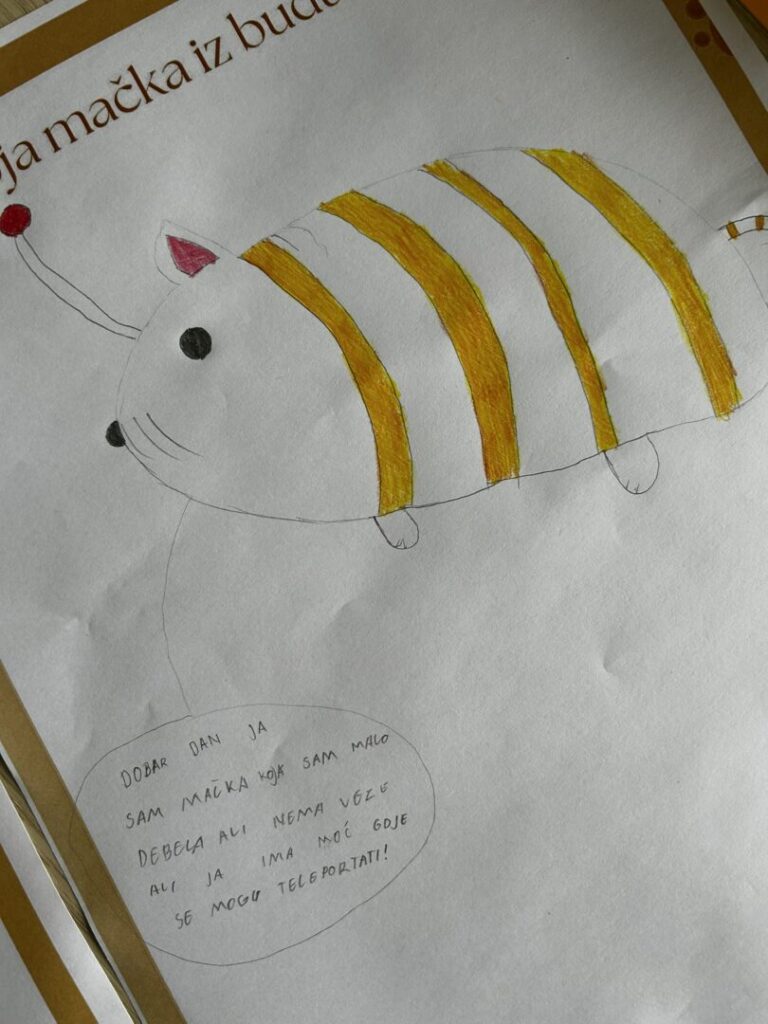 ja mačka iz bud
DOBAR DAN JA
SAM MAČKA KOJA SAM MALO
DEBELA ALI NEMA VEZE
ALI JA IMA MOĆ GDJE
SE MOGU TELEPORTATI!